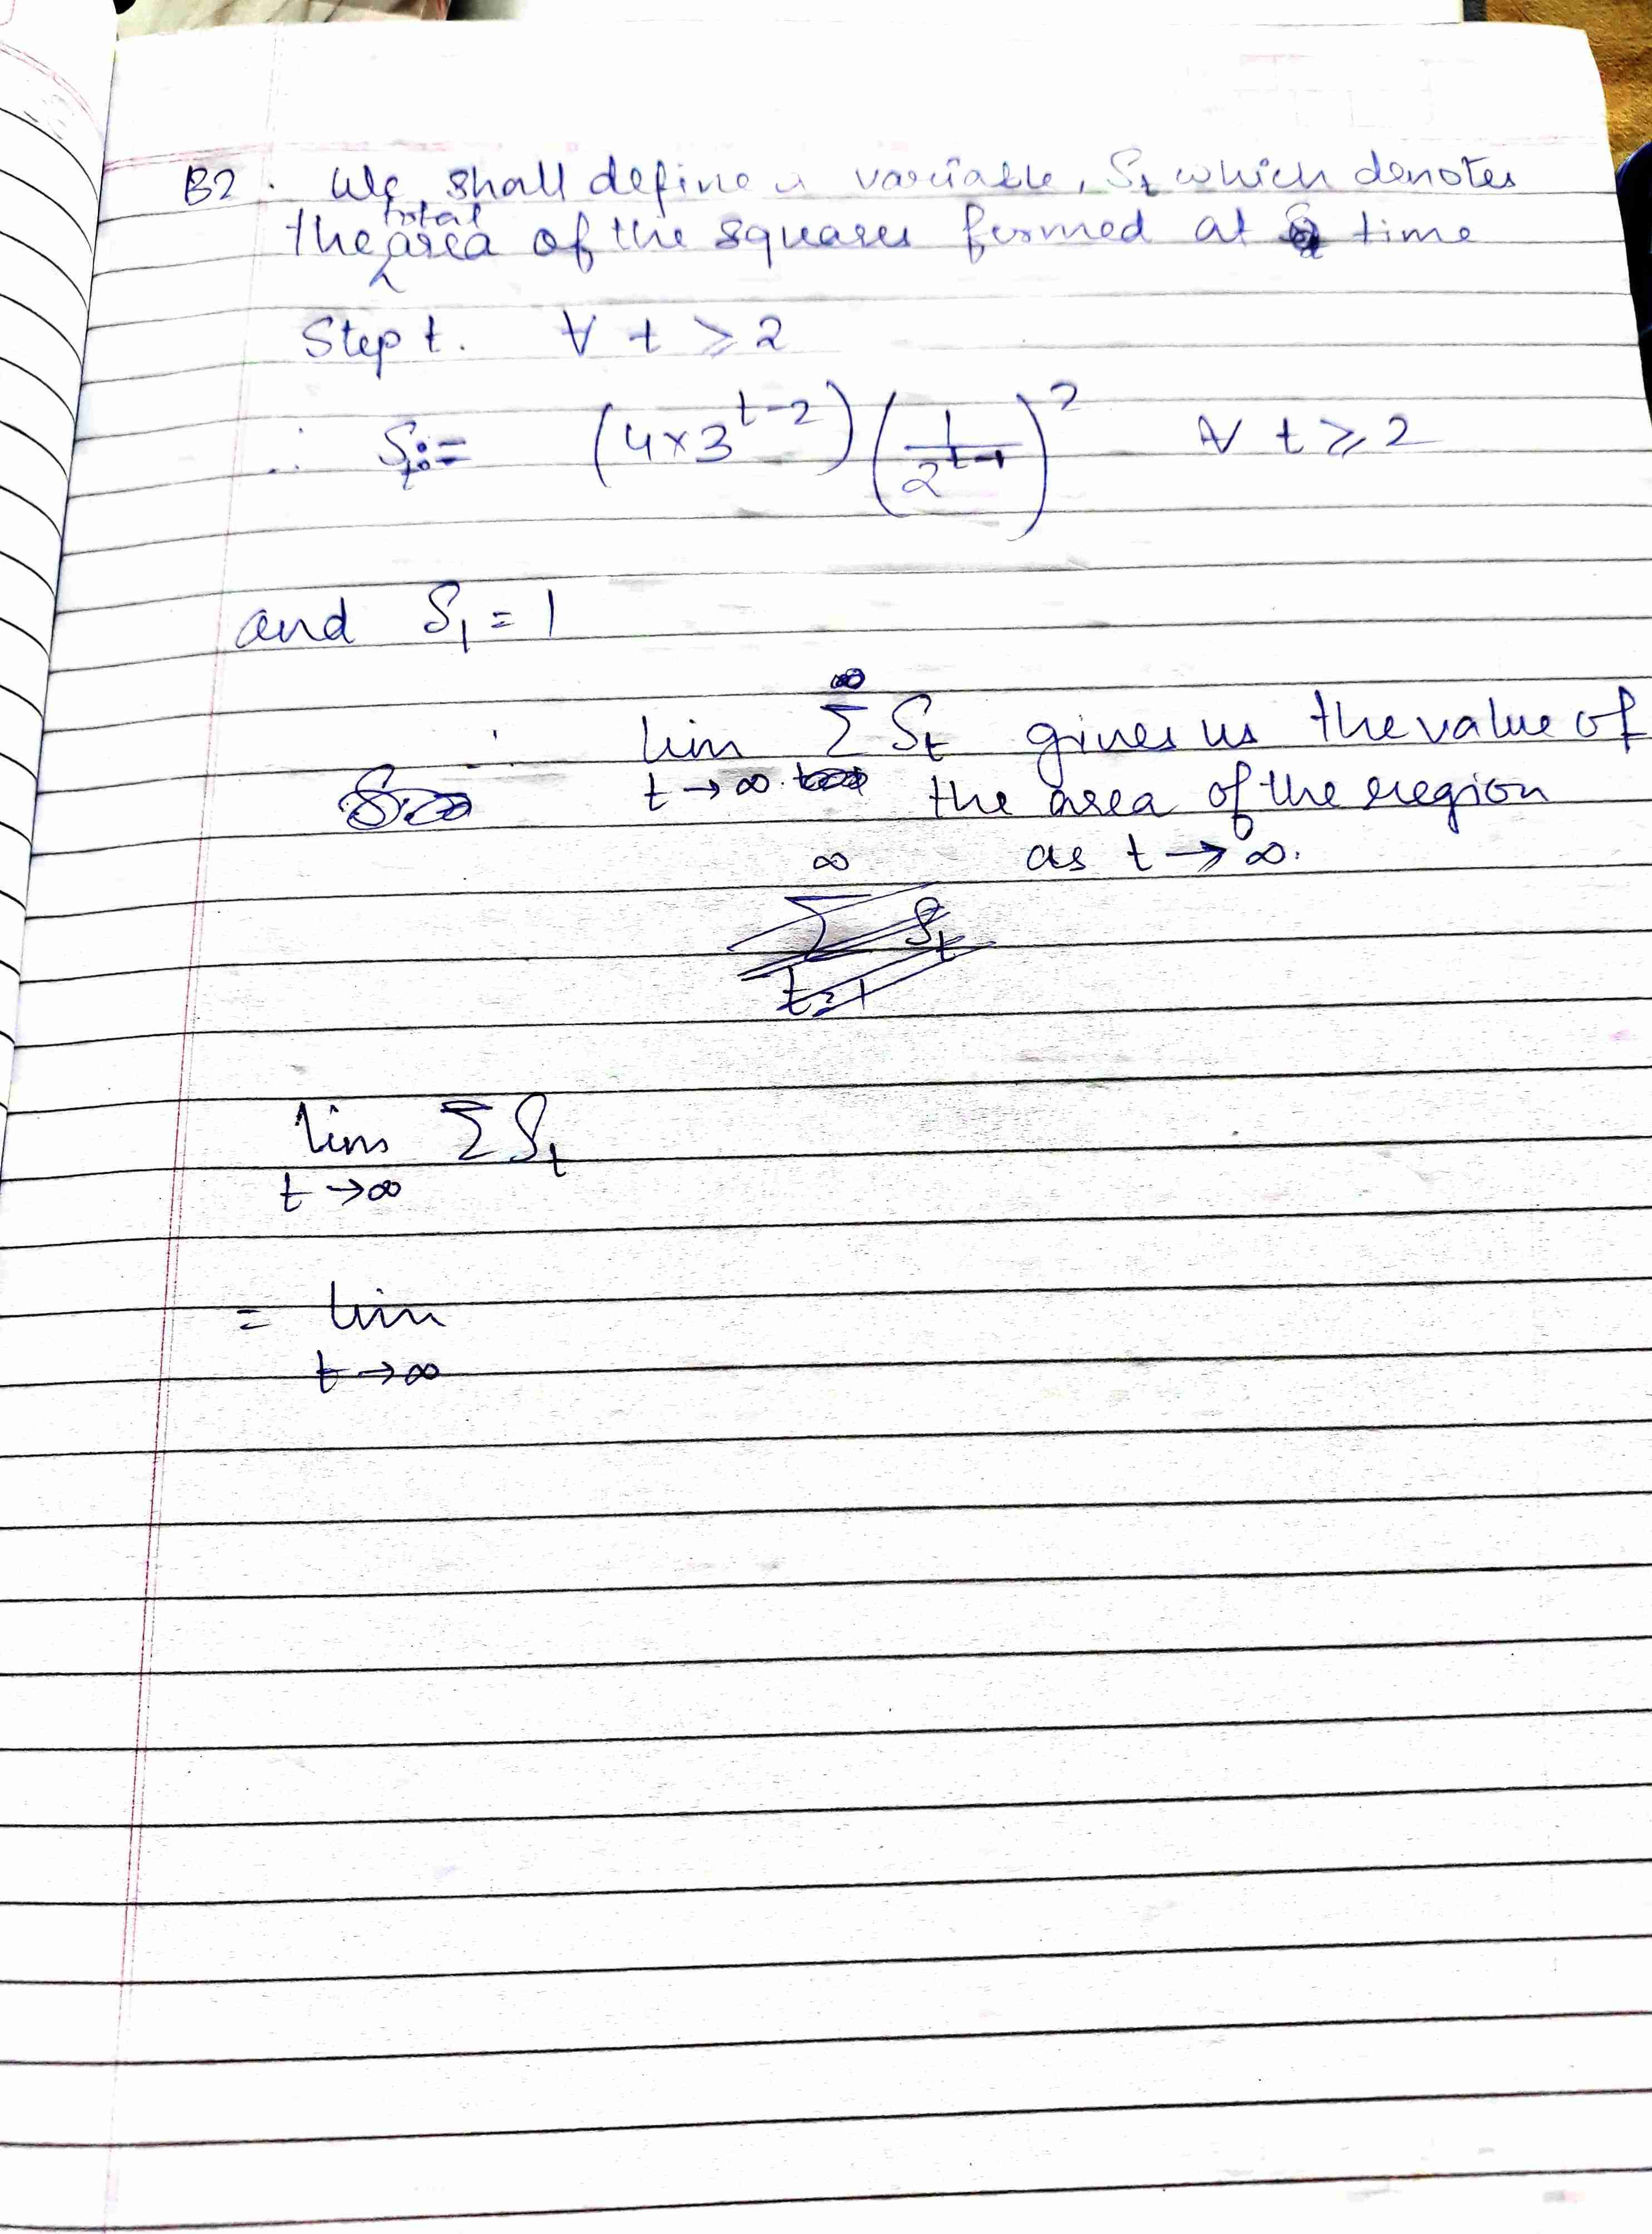 B2. We shall define a variable, S_t which denotes
the total area of the squares formed at time
Step t. ∀ t ≥ 2
∴ S_t := (4×3^{t-2}) (1/2^{t-1})^2 ∀ t ≥ 2
and S_1 = 1
∴ lim t→∞ Σ S_t gives us the value of
the area of the region
as t → ∞.
∞
Σ S_t
t=1
lim t→∞ Σ S_t
= lim t→∞